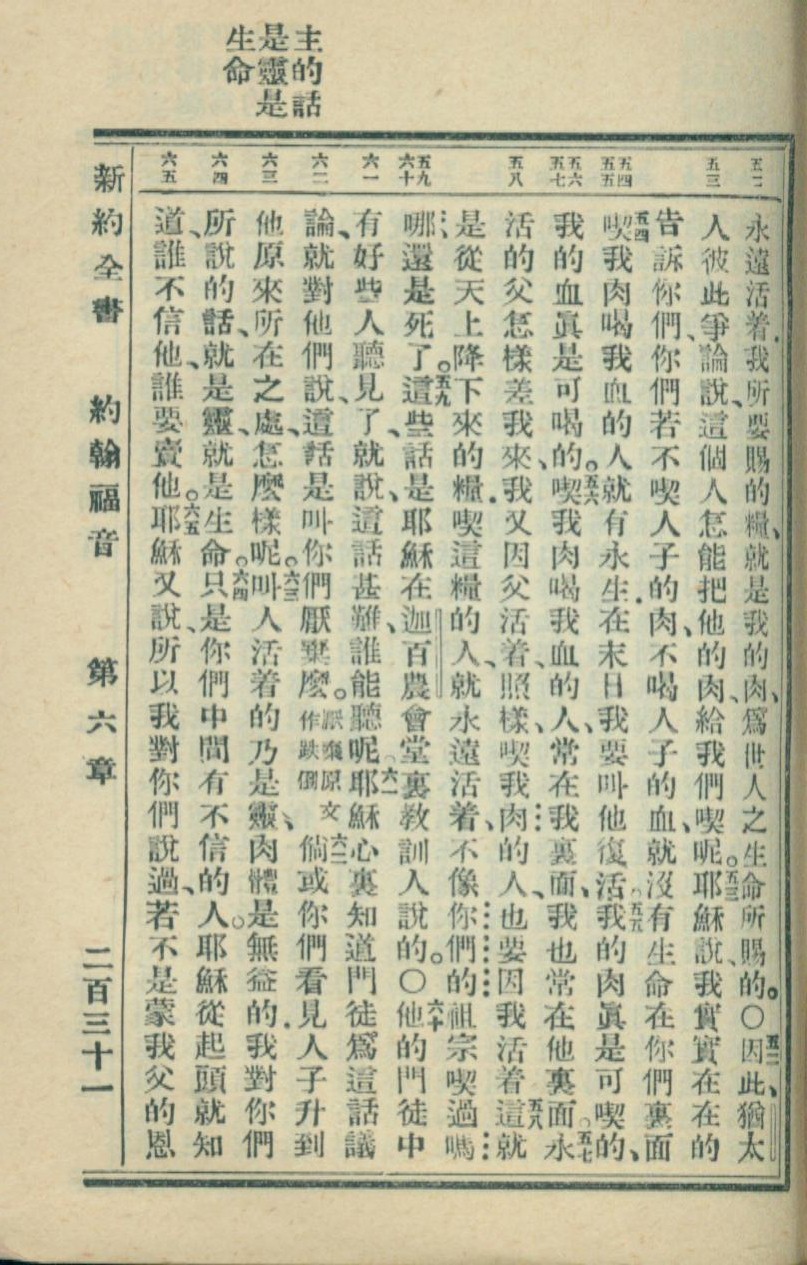 主的話
是靈是
生命
五二 五三 五四 五五 五六 五七 五八 五九 六十 六一 六二 六三 六四 六五
永遠活着．我所要賜的糧、就是我的肉、爲世人之生命所賜的。〇五二因此、猶太
人彼此爭論說、這個人怎能把他的肉、給我們喫呢。五三耶穌說、我實實在在的
告訴你們、你們若不喫人子的肉、不喝人子的血、就沒有生命在你們裏面
五四喫我肉喝我血的人、就有永生．在末日我要叫他復活。五五我的肉眞是可喫的、
我的血眞是可喝的。五六喫我肉喝我血的人、常在我裏面、我也常在他裏面。五七永
活的父怎樣差我來、我又因父活着、照樣、喫我肉的人、也要因我活着五八這就
是從天上降下來的糧．喫這糧的人、就永遠活着、不像你們的祖宗喫過嗎
哪、還是死了。五九這些話、是耶穌在迦百農會堂裏教訓人說的。〇六十他的門徒中
有好些人聽見了、就說、這話甚難、誰能聽呢。六一耶穌心裏知道門徒爲這話議
論、就對他們說、這話是叫你們厭棄麼。厭棄原文作跌倒六二倘或你們看見人子升到
他原來所在之處、怎麼樣呢。六三叫人活着的乃是靈、肉體是無益的．我對你們
所說的話、就是靈、就是生命。六四只是你們中間有不信的人。耶穌從起頭就知
道、誰不信他、誰要賣他。六五耶穌又說、所以我對你們說過、若不是蒙我父的恩
新約全書　約翰福音　第六章　二百三十一